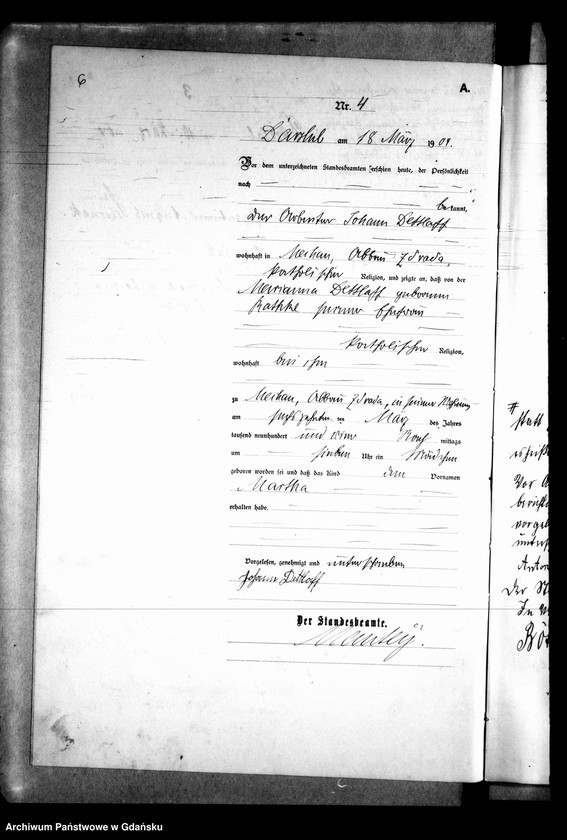 6
A.
Nr. 4
Darslub am 18 März 1904.
Vor dem unterzeichneten Standesbeamten erschien heute, der Persönlichkeit
nach
bekannt,
der Arbeiter Johann Dettlaff
wohnhaft in Mechau, Abbau Zdrada,
katholischer Religion, und zeigte an, daß von der
Marianna Dettlaff geborenen
Rathke seiner Ehefrau
katholischer Religion,
wohnhaft bei ihm
zu Mechau, Abbau Zdrada, in seiner Wohnung
am sechszehnten ten März des Jahres
tausend neunhundert und vier Nachmittags
um sieben Uhr ein Mädchen
geboren worden sei und daß das Kind den Vornamen
Martha
erhalten habe.
Vorgelesen, genehmigt und unterschrieben
Johann Dettlaff
Der Standesbeamte.
#
statt
Der St
In V
Archiwum Państwowe w Gdańsku